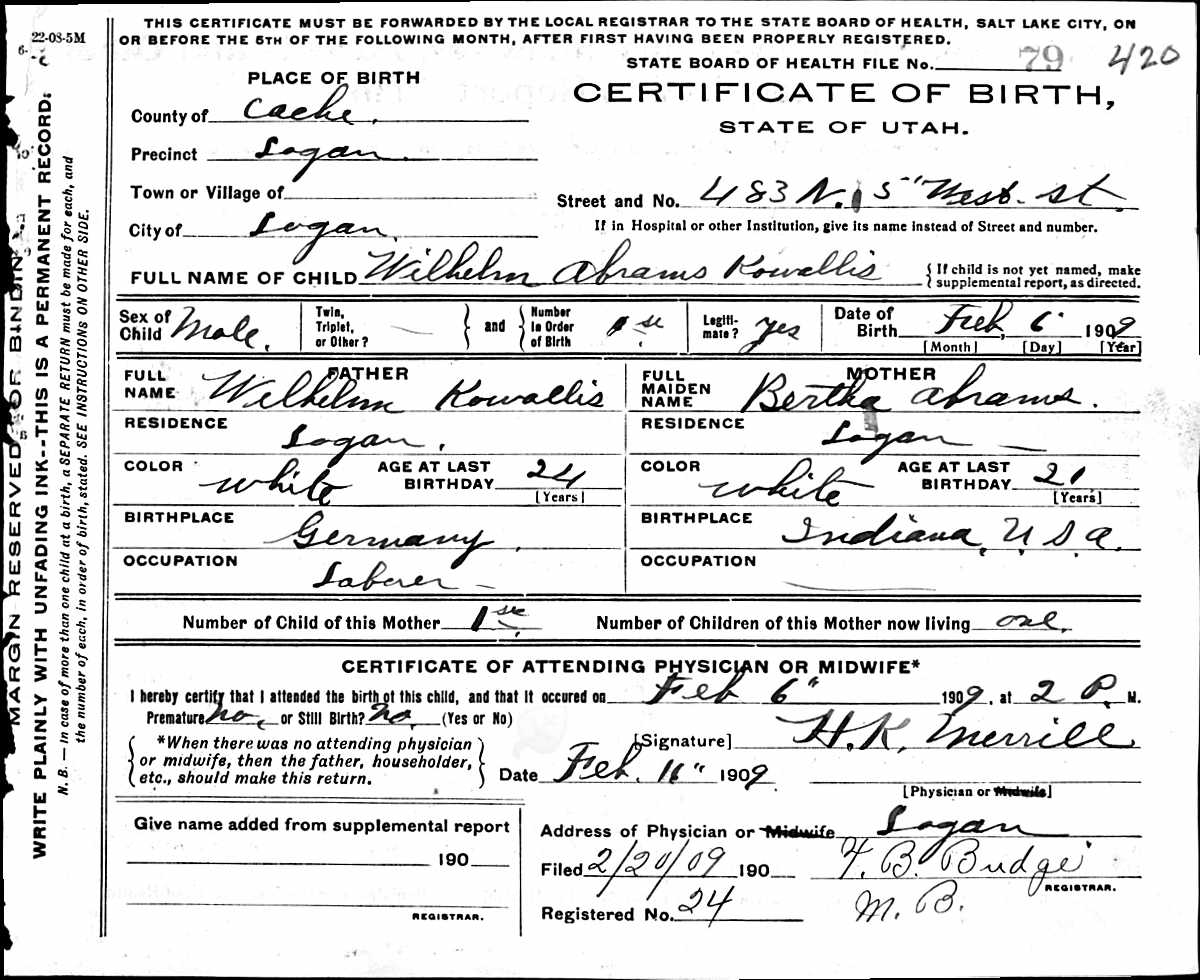 THIS CERTIFICATE MUST BE FORWARDED BY THE LOCAL REGISTRAR TO THE STATE BOARD OF HEALTH, SALT LAKE CITY, ON
OR BEFORE THE 5TH OF THE FOLLOWING MONTH, AFTER FIRST HAVING BEEN PROPERLY REGISTERED.
22-08-5M
STATE BOARD OF HEALTH FILE No. 79 420
PLACE OF BIRTH
CERTIFICATE OF BIRTH,
STATE OF UTAH.
County of Cache.
Precinct Logan.
Town or Village of
Street and No. 483 N. 5" West. St.
City of Logan.
If in Hospital or other Institution, give its name instead of Street and number.
FULL NAME OF CHILD Wilhelm Abrams Kowallis
{If child is not yet named, make
supplemental report, as directed.
Sex of Child Male.
Twin, Triplet, or Other?
and
Number in Order of Birth 1st
Legiti-mate? Yes
Date of Birth Feb. 6 1909
[Month] [Day] [Year]
FATHER
FULL NAME Wilhelm Kowallis
RESIDENCE
Logan.
COLOR white
AGE AT LAST BIRTHDAY 24
[Years]
BIRTHPLACE
Germany.
OCCUPATION
Laborer -
MOTHER
FULL MAIDEN NAME Bertha Abrams.
RESIDENCE
Logan
COLOR white
AGE AT LAST BIRTHDAY 21
[Years]
BIRTHPLACE
Indiana, U.S.A.
OCCUPATION
Number of Child of this Mother 1st
Number of Children of this Mother now living one.
CERTIFICATE OF ATTENDING PHYSICIAN OR MIDWIFE*
I hereby certify that I attended the birth of this child, and that it occured on Feb 6" 1909, at 2 P. M.
Premature? no, or Still Birth? no. (Yes or No)
*When there was no attending physician
or midwife, then the father, householder,
etc., should make this return.
[Signature] H.K. Merrill
Date Feb. 11" 1909
[Physician or Midwife]
Give name added from supplemental report
190
REGISTRAR.
Address of Physician or Midwife Logan
Filed 2/20/09 190
F. B. Budge
REGISTRAR.
Registered No. 24
M. B.
MARGIN RESERVED FOR BINDING
WRITE PLAINLY WITH UNFADING INK--THIS IS A PERMANENT RECORD:
N. B. — In case of more than one child at a birth, a SEPARATE RETURN must be made for each, and
the number of each, in order of birth, stated. SEE INSTRUCTIONS ON OTHER SIDE.